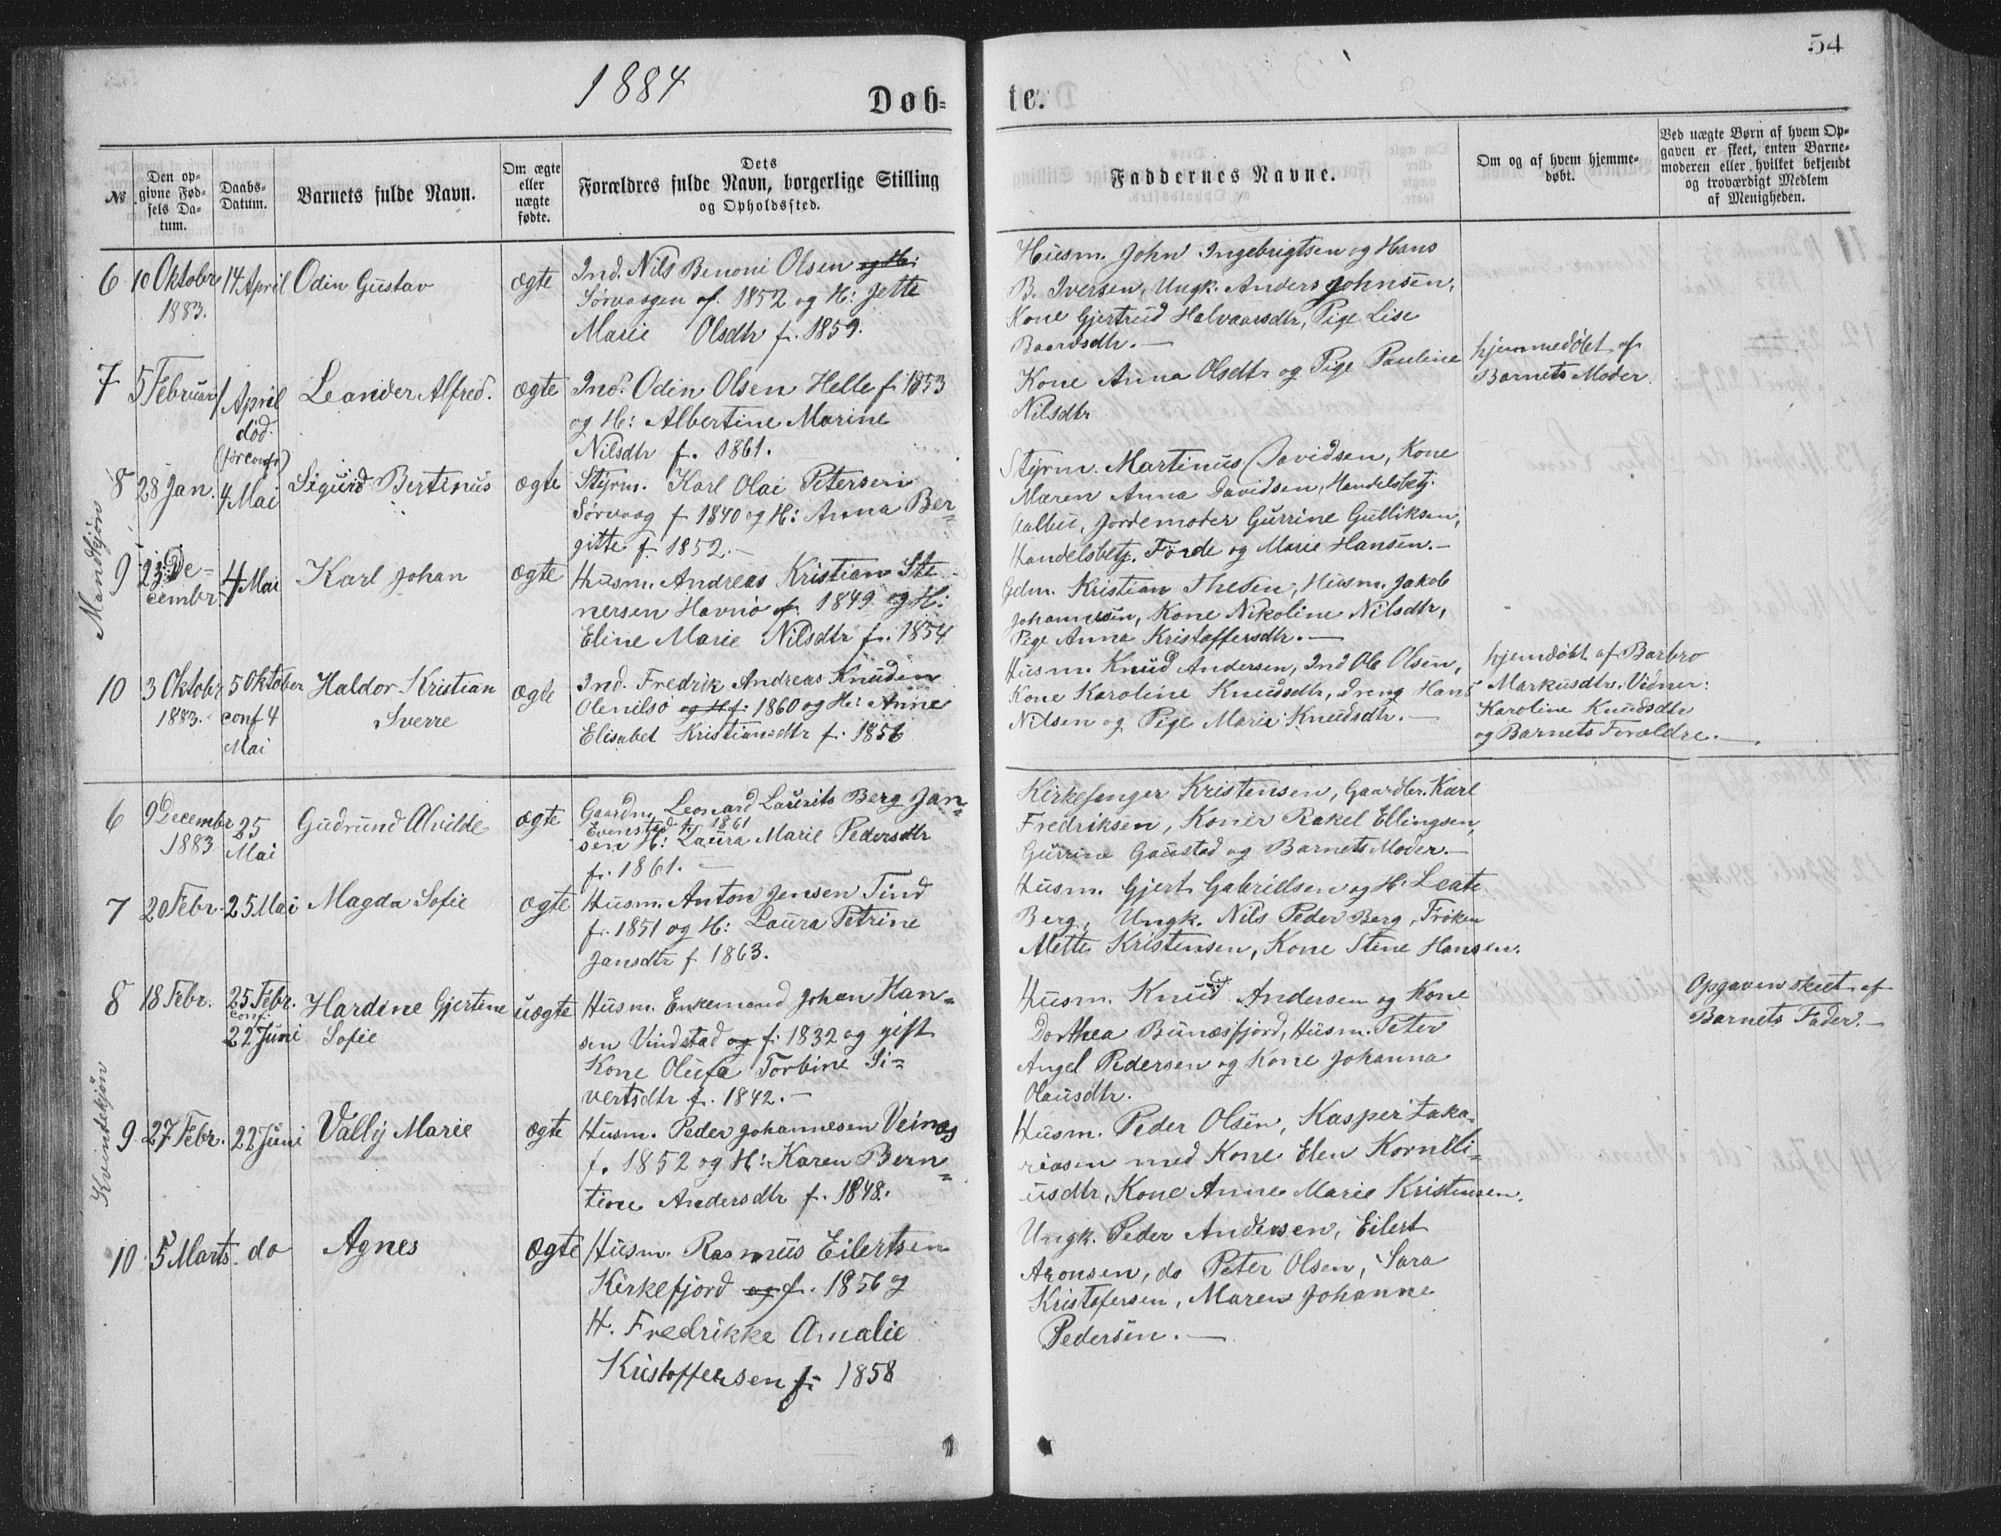 1884
Døb=
№
Den op-
givne Fød-
sels Da-
tum.
Daabs-
Datum.
Barnets fulde Navn.
Om ægte
eller
uægte
fødte.
Dets
Forældres fulde Navn, borgerlige Stilling
og Opholdssted.
Mandkjøn
6
10 Oktober
1883.
14 April
Odin Gustav
ægte
Ind. Nils Benoni Olsen og H:
Sørvaagen f. 1852 og H: Jette
Marie Olsdtr f. 1859.
7
5 Februar
1 April
død
(før conf.)
Leander Alfred.
ægte
Ind. Odin Olsen Helle f. 1853
og H: Albertine Marine
Nilsdtr f. 1861.
8
28 Jan.
4 Mai
Sigurd Bertinus
ægte
Styrm. Karl Olai Petersen
Sørvaag f 1840 og H: Anna Ber-
gitte f. 1852.-
9
23 De-
cembr.
4 Mai
Karl Johan
ægte
Husm. Andreas Kristian Ste
nersen Havnø f. 1849 og H:
Eline Marie Nilsdtr f. 1854
10
3 Oktobr
1883.
5 Oktober
conf 4
Mai
Haldor Kristian
Sverre
ægte
Ind. Fredrik Andreas Knudsen
Olenilsø og H f. 1860 og H: Anne
Elisabet Kristiansdtr f. 1856
Kvindekjøn
6
9 Decembr
1883
25
Mai
Gudrund Alvilde
ægte
Gaardm. Leonard Laurits Berg Jan-
Evenstad f. 1861
sen H: Laura Marie Pedersdtr
f. 1861.-
7
20 Febr.
25 Mai
Magda Sofie
ægte
Husm. Anton Jensen Tind
f. 1851 og H: Laura Petrine
Jansdtr f. 1863.
8
18 Febr.
25 Febr.
conf.
22 Juni
Hardine Gjertine
Sofie
uægte
Husm. Enkemand Johan Han-
sen Vindstad og f. 1832 og gift
Kone Olufa Torbine Si-
vertsdtr f. 1842.-
9
27 Febr.
22 Juni
Vally Marie
ægte
Husm. Peder Johannesen Veines
f. 1852 og H: Karen Bern-
tine Andersdtr f. 1848.
10
5 Marts.
do
Agnes
ægte
Husm. Rasmus Eilertsen
Kirkefjord og f. 1856 og
H. Fredrikke Amalie
Kristoffersen f: 1858
54
te.
Faddernes Navne.
Om og af hvem hjemme-
døbt.
Ved uægte Børn af hvem Op-
gaven er skeet, enten Barne-
moderen eller hvilket bekjendt
og troværdigt Medlem
af Menigheden.
Husm. John Ingebrigtsen og Hans
B. Iversen, Ungk. Anders Johnsen,
Kone Gjertrud Halvaarsdtr, Pige Lise
Baardsdtr.-
Kone Anna Olsdtr og Pige Pauline
Nilsdtr
hjemmedøbt af
Barnets Moder.
Styrm. Martinus Davidsen, Kone
Maren Anna Davidsen, Handelsbetj.
Aalbu, Jordemoder Gurrine Gulliksen,
Handelsbetj. Førde og Marie Hansen.-
Gdm. Kristian Thesen, Husm. Jakob
Johannesen, Kone Nikoline Nilsdtr,
Pige Anna Kristoffersdtr.-
Husm. Knud Andersen, Ind Ole Olsen,
Kone Karoline Knudsdtr, Dreng Hans
Nilsen og Pige Marie Knudsdtr.-
hjemdøbt af Barbro
Markusdtr. Vidner:
Karoline Knudsdtr
og Barnets Forældre.-
Kirkesanger Kristensen, Gaardbr. Karl
Fredriksen, Koner Rakel Ellingsen,
Gurrine Gaustad og Barnets Moder.-
Husm. Gjert Gabrielsen og H. Leate
Berg, Ungk. Nils Peder Berg, Frøken
Mette Kristensen, Kone Stine Hansen.
Husm. Knud Andersen og Kone
Dorthea Bunæsfjord, Husm. Peter
Angel Pedersen og Kone Johanna
Olausdtr.
Opgaven skeet af
Barnets Fader.-
Husm. Peder Olsen, Kasper Zaka-
riasen med Kone Elen Korneli-
usdtr, Kone Anne Marie Kristensen.
Ungk. Peder Andersen, Eilert
Aronsen, do Peter Olsen, Sara
Kristofersen, Maren Johanne
Pedersen.-